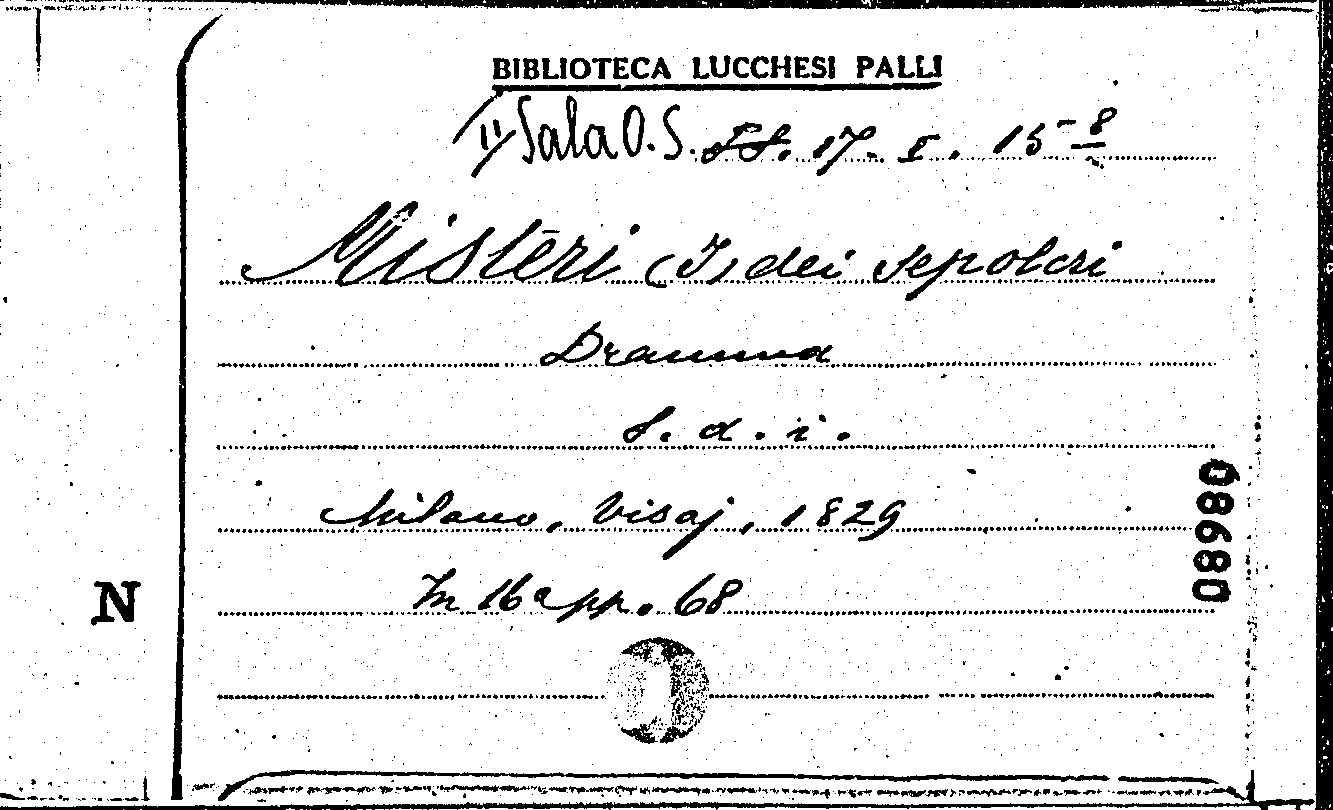 BIBLIOTECA LUCCHESI PALLI
II Sala O.S. 17. I. 15-8
Misteri (I) dei sepolcri
Dramma
S. d. i.
Milano, Visaj, 1829
In 16° pp. 68
08680
N